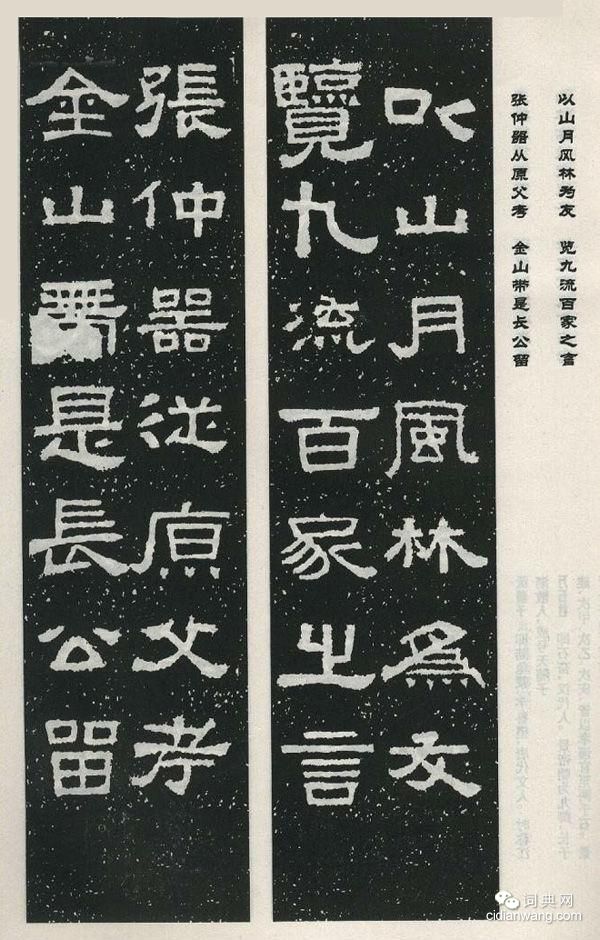 以山月风林为友 览九流百家之言
张仲器从原父考 金山带是长公留
以山月風林為友
覽九流百家之言
張仲器從原父考
金山帶是長公留
词典网
cidianwang.com